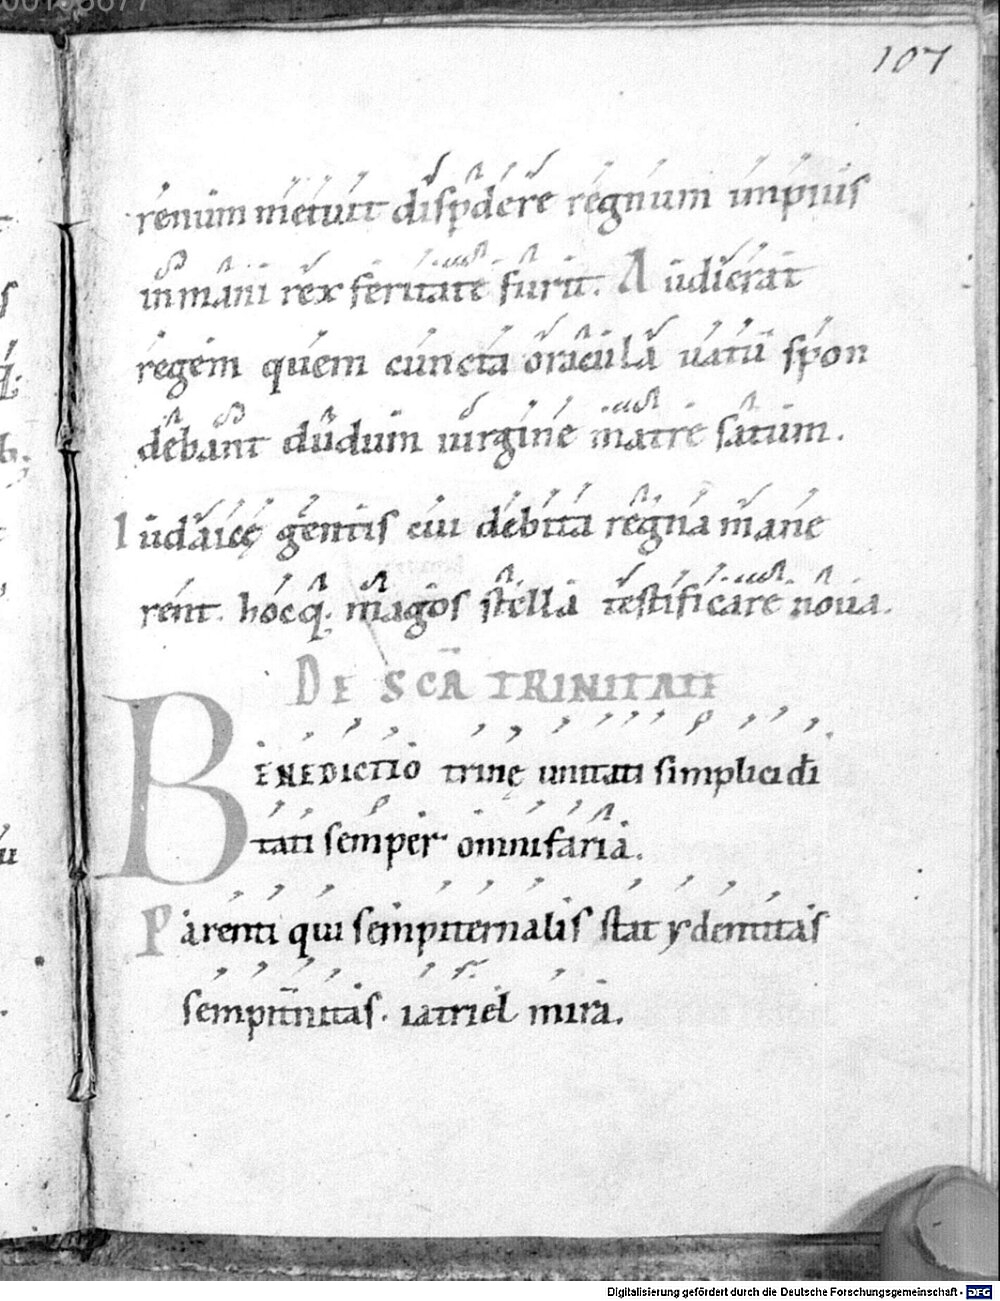 107
renum metuit disp̄dere regnum impius
inmani rex feritate furit. Audierat
regem quem cuncta oracula uatū spon
debant dudum uirgine matre satum.
Iudaicę gentis cui debita regna mane
rent. hocq; magos stella testificare noua.
DE SCĀ TRINITATE
BENEDICTIO trinę unitati simplici di
tati semper omnifaria.
Parenti qui sempiternalis stat ydentitas
sempit̄nitas. iatriel mira.
Digitalisierung gefördert durch die Deutsche Forschungsgemeinschaft - DFG